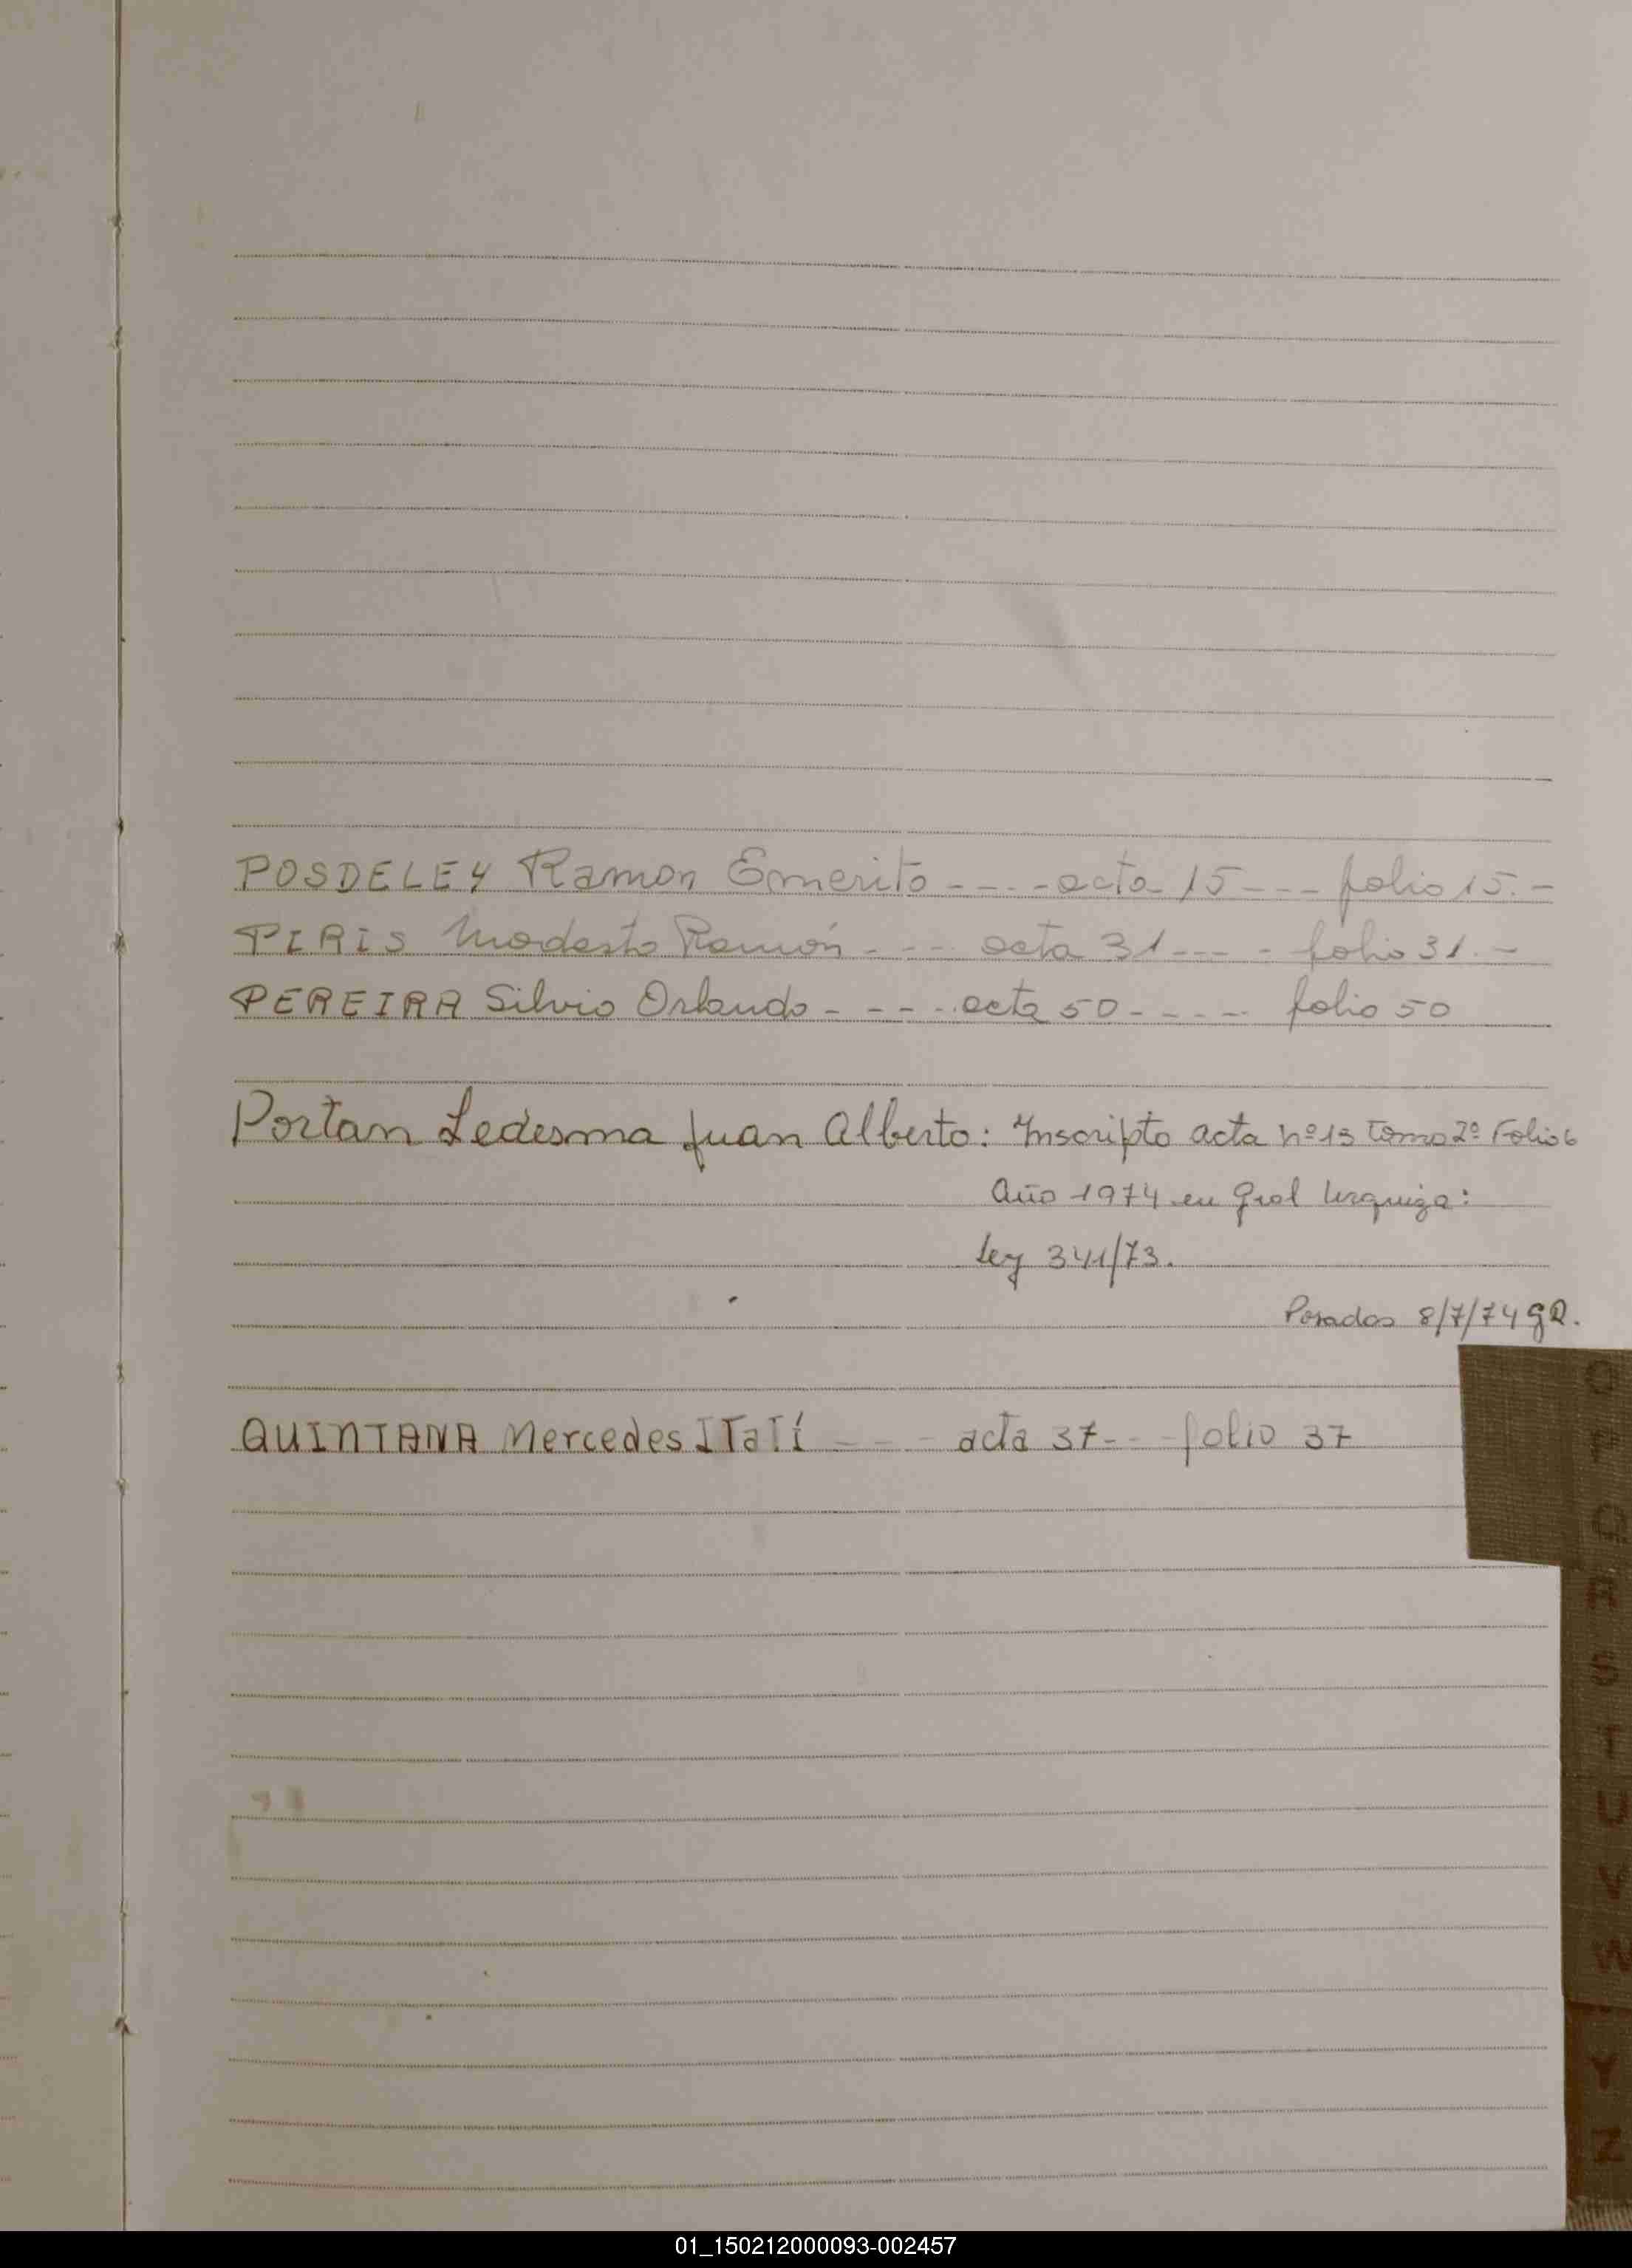 POSDELEY Ramon Emerito ----- acta 15 --- folio 15.-
PIRIS Modesto Ramón ---- acta 31 ---- folio 31.-
PEREIRA Silvio Orlando ----- acta 50 ----- folio 50
Portan Ledesma Juan Alberto: Inscripto acta nº 13 tomo 2º Folio 6
Año 1974 en Gral Urquiza:
Ley 341/73.
Posadas 8/7/74 
QUINTANA Mercedes ITaTí --- acta 37 --- folio 37
O
P
Q
R
S
T
U
V
W
Y
Z
01_150212000093-002457